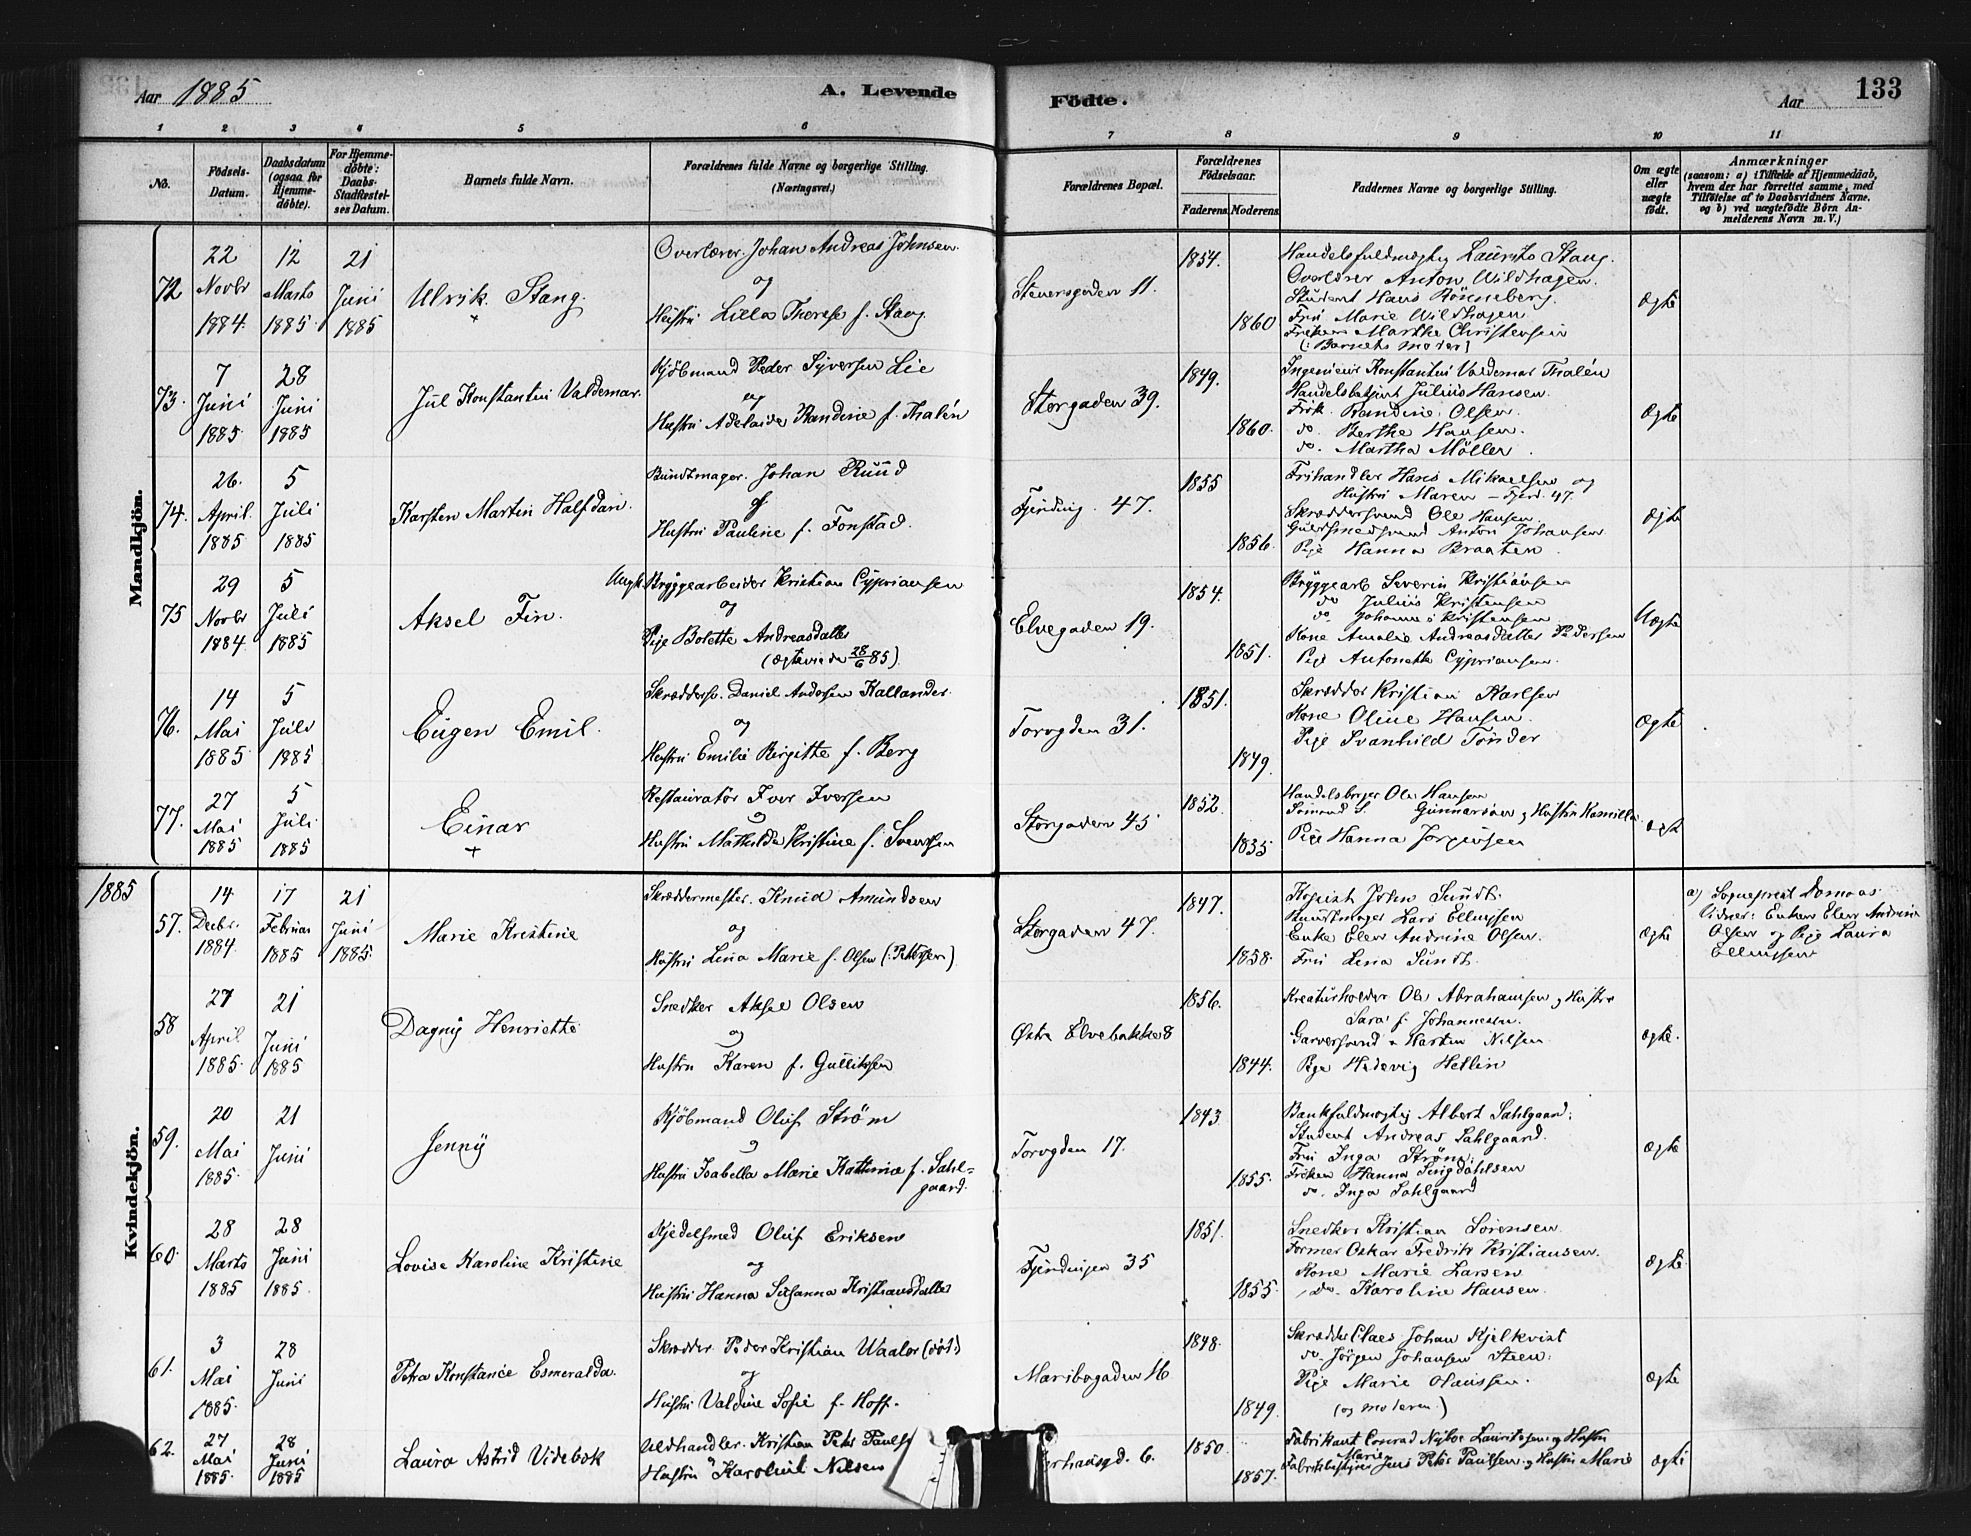 Aar 1885
A. Levende
Födte.
Aar
133
1 2 3 4 5 6 7 8 9 10 11
No.
Födsels-Datum.
Daabsdatum (ogsaa for Hjemme-döbte).
For Hjemme-döbte: Daabs-Stadfæstel-ses Datum.
Barnets fulde Navn.
Forældrenes fulde Navne og borgerlige Stilling. (Næringsvei.)
Forældrenes Bopæl.
Forældrenes Födselsaar.
Faderens. Moderens.
Faddernes Navne og borgerlige Stilling.
Om ægte eller uægte födt.
Anmærkninger
(saasom: a) i Tilfælde af Hjemmedaab,
hvem der har forrettet samme, med
Tilföielse af to Daabsvidners Navne.
og b) ved uægtefödte Börn An-
melderens Navn m. V.)
Mandkjön.
72 22 Novbr 1884. 12 Marts 1885. 21 Juni 1885
Ulrik Stang.
+
Overlærer Johan Andreas Johnsen.
og
Hustru Lilla Therese f. Stang
Stenersgaden 11.
1854. 1860
Handelsfuldmægtig Laurits Stang.
Overlærer Anton Wildhagen.
Student Hans Rönneberg.
Fru Marie Wildhagen
Frøken Martha Christensen
(: Barnets moder)
Ægte
73. 7 Juni 1885. 28 Juni 1885
Jul Konstantin Valdemar.
Kjöbmand Peder Syversen Lie
og
Hustru Adelaide Randine f. Thalén
Storgaden 39.
1849. 1860.
Ingenieur Konstantin Valdemar Thalén
Handelsbetjent Julius Hansen.
Frøk. Randine Olsen.
do. Berthe Hansen.
do. Martha Möller.
Ægte
74. 26. April. 1885 5 Juli 1885
Karsten Martin Halfdan.
Bundtmager. Johan Ruud
og
Hustru Pauline f. Fonstad.
Fjerding. 47.
1855 1856.
Frihandler Hans Mikaelsen og
Hustru Maren – Fjerd. 47.
Skræddersvend Ole Hansen.
Guldsmedsvend Anton Johansen
Pige Hanna Braaten.
Ægte
75 29 Novbr 1884. 5 Juli 1885
Aksel Fin.
Ungk. Bryggearbeider Kristian Cypriansen
og
Pige Bolette Andreasdatter
(ægteviede 28/6 85)
Elvegaden 19.
1854. 1851.
Bryggearb Severin Kristiansen
do Julius Kristensen
do Johannes Kristensen
Kone Amalie Andreasdatter Pedersen
Pige Antonette Cypriansen.
Uægte
76. 14 Mai 1885. 5 Juli 1885
Eugen Emil.
Skræddersv. Daniel Andersen Kallander.
og
Hustru Emilie Birgitte f. Berg
Torvgden 31.
1851. 1849.
Skrædder Kristian Karlsen
Kone Oline Hansen.
Pige Svanhild Tønder
Ægte
77. 27 Mai 1885 5 Juli 1885
Einar
+
Restauratør Iver Iversen
og
Hustru Mathilde Kristine f. Svendsen
Storgaden 45
1852. 1835
Handelsborger Ole Hansen
Sömand S. Gunnarsen og Hustru Kamilla
Pige Hanna Jørgensen
ægt
Kvindekjön.
1885
57. 14 Decbr. 1884. 17 Februar 1885 21 Juni 1885.
Marie Kristine
Skræddermester. Knud Amundsen
og
Hustru Lina Marie f. Olsen (: Petersen)
Storgaden 47.
1847. 1858.
Kopist John Sundt.
Lars Ellingsen
Enke Elen Andrine Olsen.
Fru Lina Sundt.
Ægte
a) Sogneprest
Vidner: Enken Elen Andrine
Olsen og Pige Laura
Ellingsen
58 27 April 1885. 21 Juni 1885
Dagny Henriette
Snedker Aksel Olsen
og
Hustru Karen f. Gullitsen
Østre Elvebakke 8
1856. 1844.
Kreaturholder Ole Abrahamsen og Hustru
Sara f. Johannesen.
Garversvend Martin Nilsen
Pige Hedevig Hetlin
Ægte.
59. 20 Mai 1885. 21 Juni
Jenny
Kjöbmand Oluf Ström
og
Hustru Isabella Marie Kathrine f. Sahl-
gaard.
Torvgden 17.
1843. 1855.
Bankfuldmægtig Albert Sahlgaard.
Student Andreas Sahlgaard.
Fru Inga Strøm.
Frøken Hanna Singdahlsen
do. Inga Sahlgaard
Ægte
60. 28 Marts 1885 28 Juni 1885.
Lovise Karoline Kristine
Kjedelsmed Oluf Eriksen
og
Hustru Hanna Susanna Kristiansdatter
Fjerdingen 35
1851. 1855.
Snedker Kristian Sørensen
Former Oskar Fredrik Kristiansen.
Kone Marie Larsen
do. Karoline Hansen.
Ægte
61. 3 Mai 1885. 28 Juni
Petra Konstance Esmeralda.
Skrædder Peder Kristian Waaler (död)
og
Hustru Valdine Sofie f. Hoff.
Maribogaden 16
1848. 1849.
Skrædder Claes Johan Kjelkvist
do. Jørgen Johansen Steen.
Pige Marie Olaussen.
(og moderen.)
ægte
62. 27 Mai 1885. 28 Juni 1885
Laura Astrid Videbæk
Uldhandler. Kristian Peter
Hustru Karoline Nilsen
6.
1850. 1857.
Fabrikant Conrad Nyboe Lauritsen og Hustru
Marie
Jens Peter Paulsen og Hustru Marie
ægte